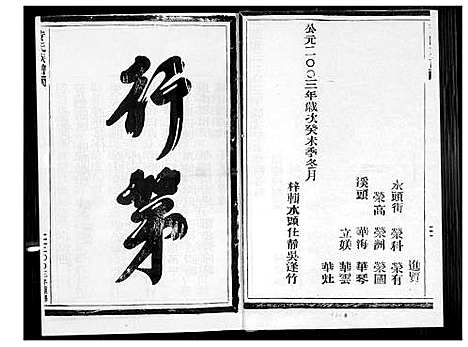 水頭街 榮科 榮有
榮高 榮洲 榮國
溪頭 華海 華琴
立媄 華雲
華灶
梓輔水頭仕靜吳逢竹
公元二〇〇三年歲次癸未季冬月
行第